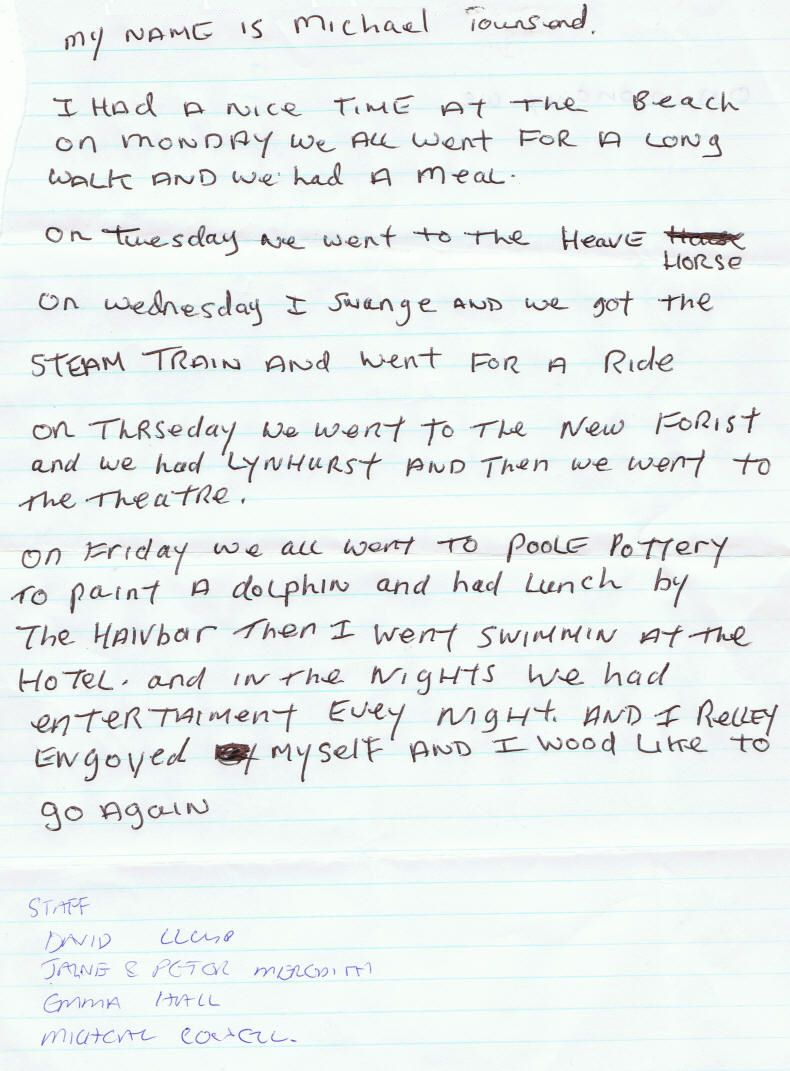 My NAME IS Michael Townsend.
I HAd A NICE TIME AT The Beach
on MONDAY We ALL Went FOR A LONg
WALK AND We had A Meal.
On Tuesday we went to the HeavE
HORSE
On wednesday I Swange AND we got the
STEAM TRAIN ANd Went FOR A Ride
on ThRSeday we went to The New FORIST
and we had LYNHURST AND Then we went to
the TheatRe.
on Friday we all went TO POOLE POTTERY
TO paint A dOLPHIN and had Lunch by
The HAIVbar Then I went SWIMMIN At the
HOTEL. and IN the NIgHTS we had
entERTAIMENT EVEY NIgHT. AND I ReLLEY
ENgoyed MYSElF AND I wood LIKe to
go AgaIN
STAFF
DAVID
JAYNE & PETER MEREDITH
EMMA HALL
MICHEAL